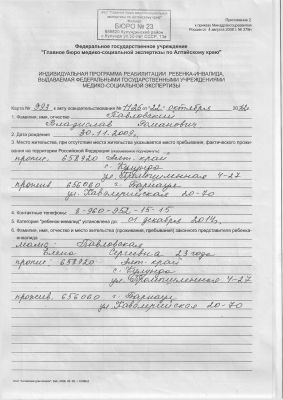 БЮРО № 23
658920 Кулундинский район
Приложение 2
к приказу Минздравсоцразвития
России от 4 августа 2008 г. № 379н
Федеральное государственное учреждение
"Главное бюро медико-социальной экспертизы по Алтайскому краю"
ИНДИВИДУАЛЬНАЯ ПРОГРАММА РЕАБИЛИТАЦИИ РЕБЕНКА-ИНВАЛИДА,
ВЫДАВАЕМАЯ ФЕДЕРАЛЬНЫМИ ГОСУДАРСТВЕННЫМИ УЧРЕЖДЕНИЯМИ
МЕДИКО-СОЦИАЛЬНОЙ ЭКСПЕРТИЗЫ
Карта № 993 к акту освидетельствования № 1125 от "22" октября
1. Фамилия, имя, отчество Павловский
Владислав Романович
2. Дата рождения 30.11.2009.
3. Место жительства, при отсутствии места жительства указывается место пребывания, фактического прожи-
вания на территории Российской Федерации
пропис. 658920 Алт. край
с. Кулунда
ул. Промышленная 4-27
прожив 656060 г. Барнаул
ул. Кавалерийская 20-70
4. Контактные телефоны 8-960-952-15-15
5. Категория "ребенок-инвалид" установлена до 01 декабря 2014,
6. Фамилия, имя, отчество и место жительства (проживания, пребывания) законного представителя ребенка-
инвалида
мама: Павловская
Елена Сергеевна 23 года
пропис: 658920 Алт. край
с. Кулунда
ул. Промышленная 4-27
прожив. 656060 г. Барнаул
ул. Кавалерийская 20-70